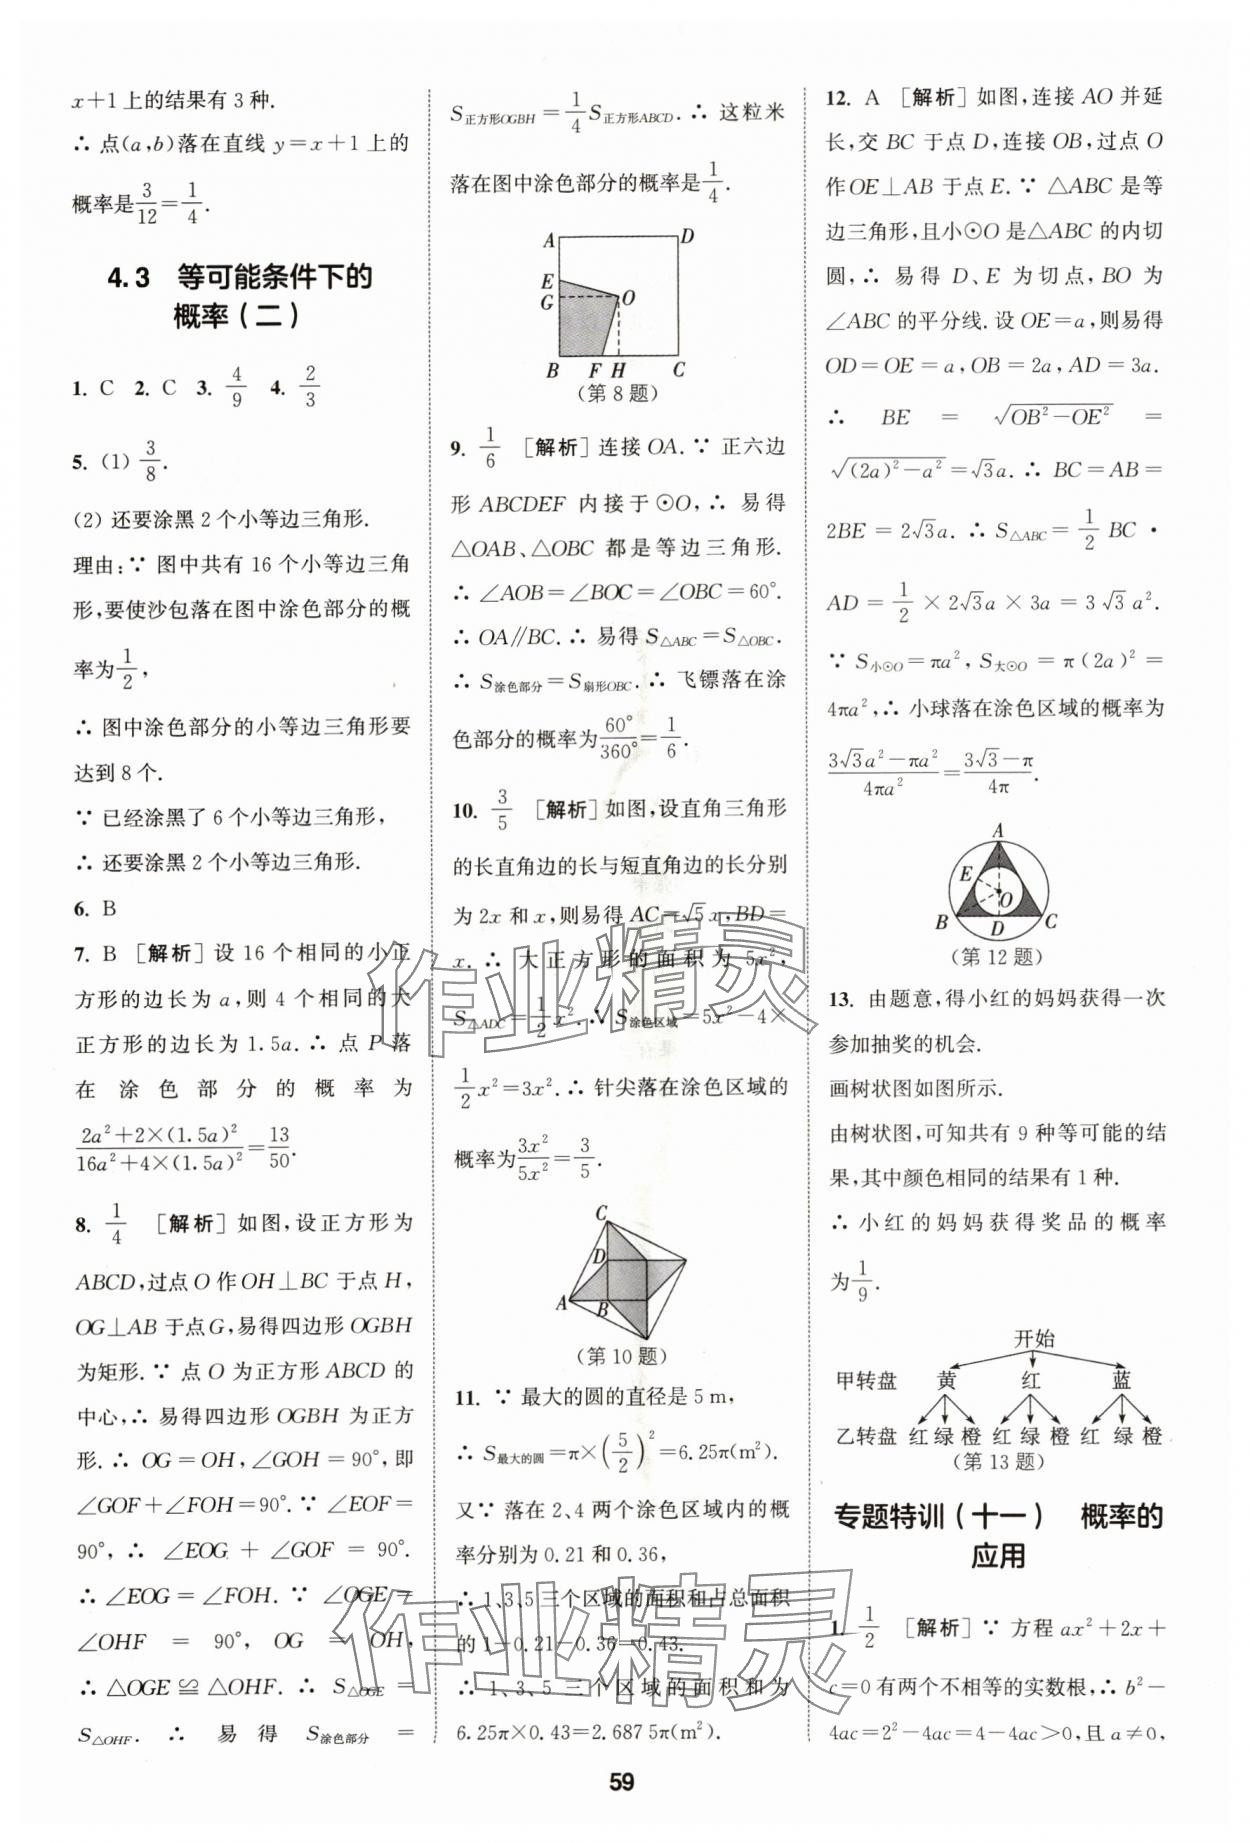 x+1上的结果有3种.
∴ 点(a,b)落在直线y=x+1上的
概率是3/12=1/4.
4.3 等可能条件下的
概率(二)
1. C 2. C 3. 4/9 4. 2/3
5. (1) 3/8.
(2) 还要涂黑2个小等边三角形.
理由:∵ 图中共有16个小等边三角
形,要使沙包落在图中涂色部分的概
率为1/2,
∴ 图中涂色部分的小等边三角形要
达到8个.
∵ 已经涂黑了6个小等边三角形,
∴ 还要涂黑2个小等边三角形.
6. B
7. B [解析]设16个相同的小正
方形的边长为a,则4个相同的大
正方形的边长为1.5a.∴ 点P落
在涂色部分的概率为
(2a²+2×(1.5a)²)/(16a²+4×(1.5a)²)=13/50.
8. 1/4 [解析]如图,设正方形为
ABCD,过点O作OH⊥BC于点H,
OG⊥AB于点G,易得四边形OGBH
为矩形.∵ 点O为正方形ABCD的
中心,∴ 易得四边形OGBH为正方
形.∴ OG=OH,∠GOH=90°,即
∠GOF+∠FOH=90°.∵ ∠EOF=
90°,∴ ∠EOG+∠GOF=90°.
∴ ∠EOG=∠FOH.∵ ∠OGE=
∠OHF=90°,OG=OH,
∴ △OGE≌△OHF.∴ S△OGE=
S△OHF.∴ 易得S涂色部分=
S正方形OGBH=1/4S正方形ABCD.∴ 这粒米
落在图中涂色部分的概率是1/4.
A D
E
G O
B F H C
(第8题)
9. 1/6 [解析]连接OA.∵ 正六边
形ABCDEF内接于⊙O,∴ 易得
△OAB、△OBC都是等边三角形.
∴ ∠AOB=∠BOC=∠OBC=60°.
∴ OA∥BC.∴ 易得S△ABC=S△OBC.
∴ S涂色部分=S扇形OBC.∴ 飞镖落在涂
色部分的概率为60°/360°=1/6.
10. 3/5 [解析]如图,设直角三角形
的长直角边的长与短直角边的长分别
为2x和x,则易得AC=√5x,BD=
x.∴ 大正方形的面积为5x²,
S△ADC=1/2x².∴ S涂色区域=5x²-4×
1/2x²=3x².∴ 针尖落在涂色区域的
概率为3x²/5x²=3/5.
C
D
A B
(第10题)
11. ∵ 最大的圆的直径是5 m,
∴ S最大的圆=π×(5/2)²=6.25π(m²).
又∵ 落在2、4两个涂色区域内的概
率分别为0.21和0.36,
∴ 1、3、5三个区域的面积和占总面积
的1-0.21-0.36=0.43.
∴ 1、3、5三个区域的面积和为
6.25π×0.43=2.687 5π(m²).
12. A [解析]如图,连接AO并延
长,交BC于点D,连接OB,过点O
作OE⊥AB于点E.∵ △ABC是等
边三角形,且小⊙O是△ABC的内切
圆,∴ 易得D、E为切点,BO为
∠ABC的平分线.设OE=a,则易得
OD=OE=a,OB=2a,AD=3a.
∴ BE=√(OB²-OE²)=
√((2a)²-a²)=√3a.∴ BC=AB=
2BE=2√3a.∴ S△ABC=1/2BC·
AD=1/2×2√3a×3a=3√3a².
∵ S小⊙O=πa²,S大⊙O=π(2a)²=
4πa²,∴ 小球落在涂色区域的概率为
(3√3a²-πa²)/4πa²=(3√3-π)/4π.
A
E
O
B D C
(第12题)
13. 由题意,得小红的妈妈获得一次
参加抽奖的机会.
画树状图如图所示.
由树状图,可知共有9种等可能的结
果,其中颜色相同的结果有1种.
∴ 小红的妈妈获得奖品的概率
为1/9.
开始
甲转盘 黄 红 蓝
乙转盘 红 绿 橙 红 绿 橙 红 绿 橙
(第13题)
专题特训(十一) 概率的
应用
1. 1/2 [解析]∵ 方程ax²+2x+
c=0有两个不相等的实数根,∴ b²-
4ac=2²-4ac=4-4ac>0,且a≠0,
59
作业精灵
作业精灵